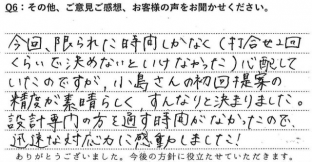 Q6:その他、ご意見ご感想、お客様の声をお聞かせください。
今回、限られた時間しかなく(打合せ2回
くらいで決めないといけなかった)心配して
いたのですが、小島さんの初回提案の
精度が素晴らしく、すんなりと決まりました。
設計専門の方を通す時間がなかったので、
迅速な対応力に感動しました!
ありがとうございました。今後の方針に役立たせていただきます。